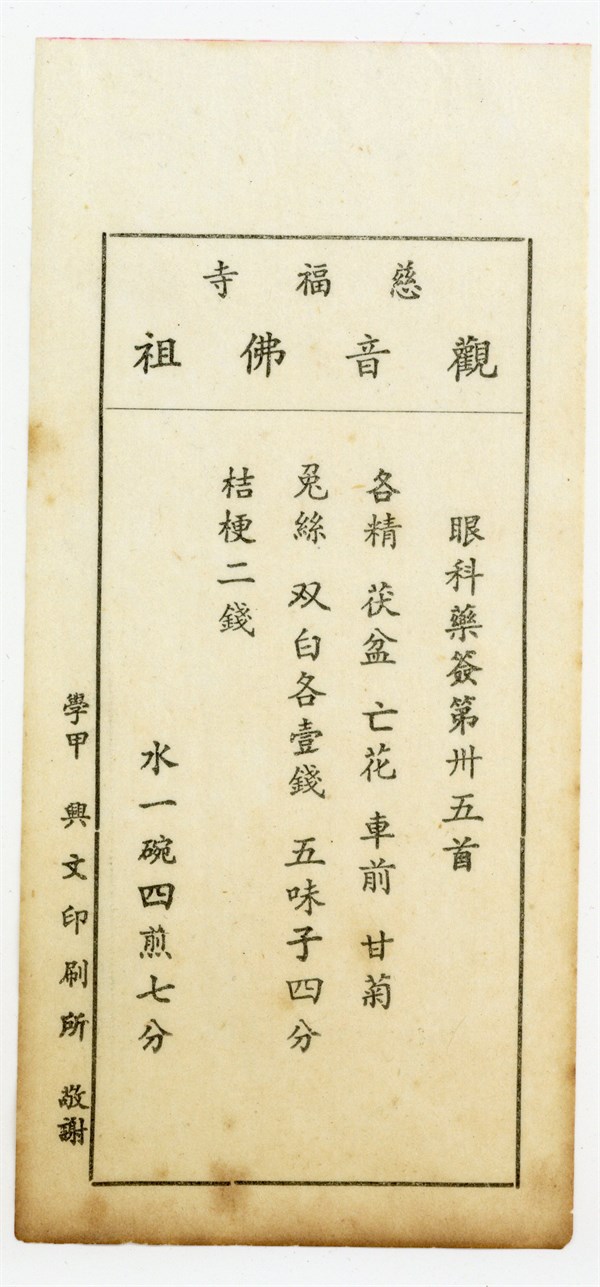 慈福寺
觀音佛祖
眼科藥簽第卅五首
各精 茯盆 亡花 車前 甘菊
兎絲 双白各壹錢 五味子四分
桔梗二錢
水一碗四煎七分
學甲 興文印刷所 敬謝